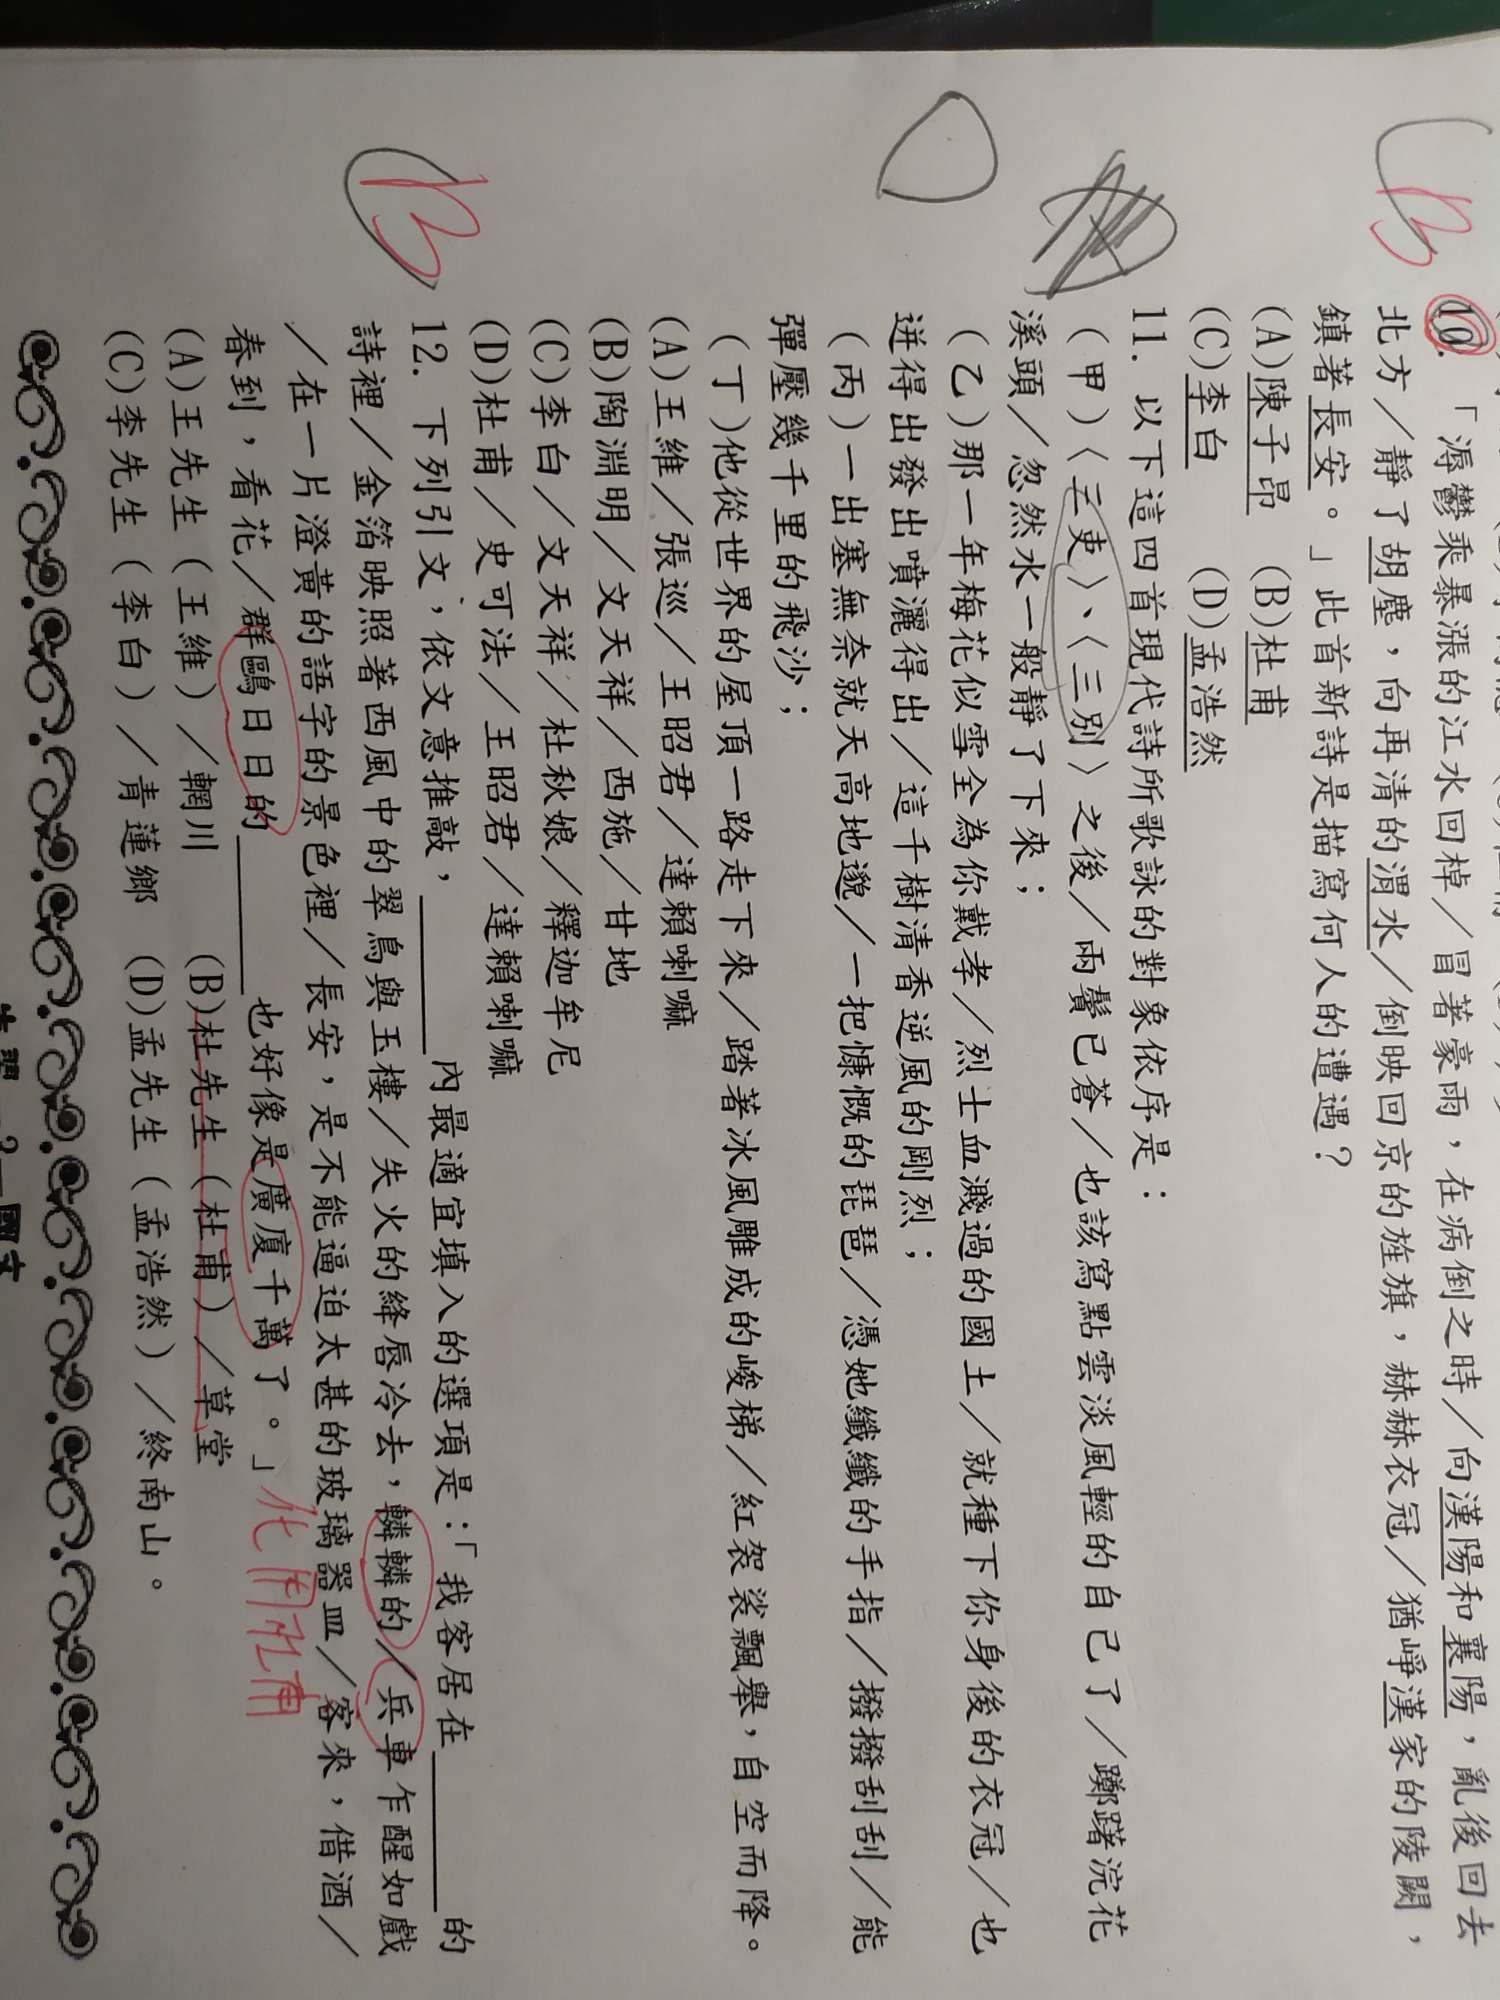 B 10.「溽鬱乘暴漲的江水回棹／冒著豪雨，在病倒之時／向漢陽和襄陽，亂後回去
北方／靜了胡塵，向再清的渭水／倒映回京的旌旗，赫赫衣冠／猶崢漢家的陵闕，
鎮著長安。」此首新詩是描寫何人的遭遇？
(A)陳子昂 (B)杜甫
(C)李白 (D)孟浩然
11. 以下這四首現代詩所歌詠的對象依序是：
（甲）〈三吏〉、〈三別〉之後／兩鬢已蒼／也該寫點雲淡風輕的自己了／躑躅浣花
溪頭／忽然水一般靜了下來；
（乙）那一年梅花似雪全為你戴孝／烈士血濺過的國土／就種下你身後的衣冠／也
迸得出發出噴灑得出／這千樹清香逆風的剛烈；
（丙）一出塞無奈就天高地邈／一把慷慨的琵琶／憑她纖纖的手指／撥撥刮刮／能
彈壓幾千里的飛沙；
（丁）他從世界的屋頂一路走下來／踏著冰風雕成的峻梯／紅袈裟飄舉，自空而降。
(A)王維／張巡／王昭君／達賴喇嘛
(B)陶淵明／文天祥／西施／甘地
(C)李白／文天祥／杜秋娘／釋迦牟尼
(D)杜甫／史可法／王昭君／達賴喇嘛
B 12. 下列引文，依文意推敲，＿＿＿＿內最適宜填入的選項是：「我客居在＿＿＿＿的
詩裡／金箔映照著西風中的翠鳥與玉樓／失火的絳唇冷去，轔轔的／兵車乍醒如戲
／在一片澄黃的語字的景色裡／長安，是不能逼迫太甚的玻璃器皿／客來，借酒／
春到，看花／群鷗日日的＿＿＿＿也好像是廣廈千萬了。」化用杜甫
(A)王先生（王維）／輞川 (B)杜先生（杜甫）／草堂
(C)李先生（李白）／青蓮鄉 (D)孟先生（孟浩然）／終南山。